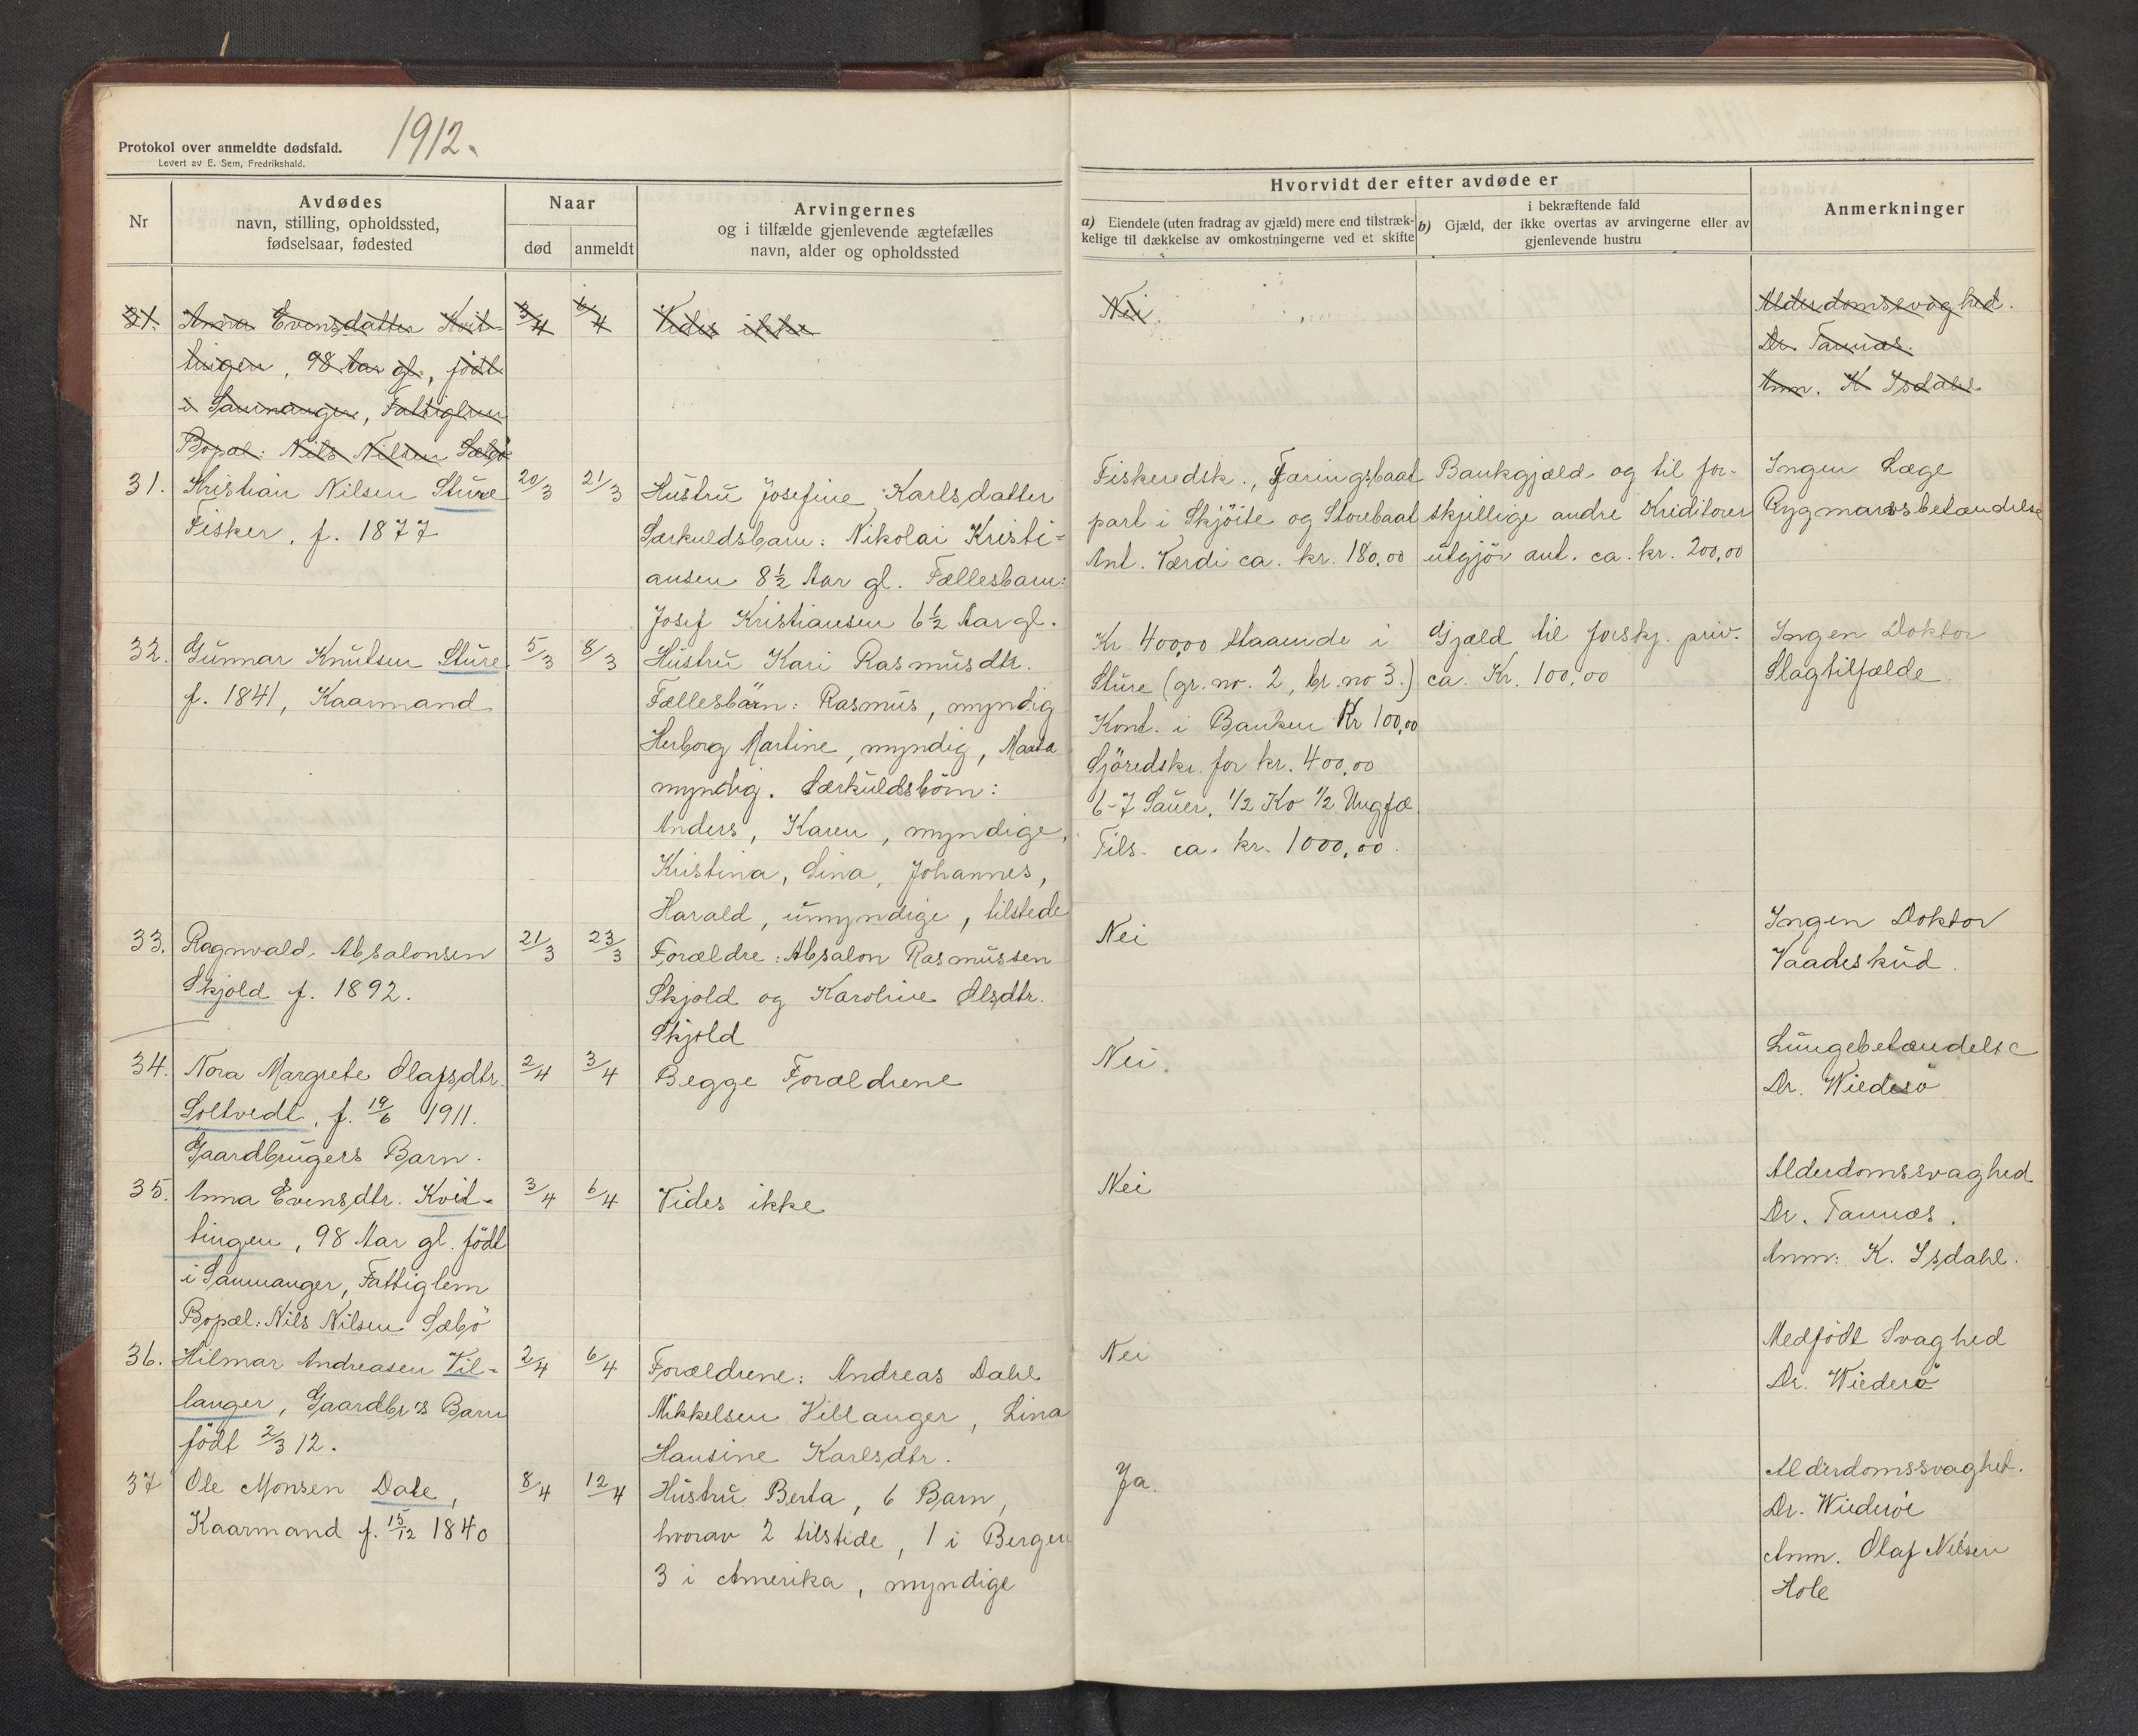 1912.
Protokol over anmeldte dødsfald.
Levert av E. Sem, Fredrikshald.
Nr
Avdødes
navn, stilling, opholdssted,
fødselsaar, fødested
Naar
død
anmeldt
Arvingernes
og i tilfælde gjenlevende ægtefælles
navn, alder og opholdssted
Hvorvidt der efter avdøde er
a) Eiendele (uten fradrag av gjæld) mere end tilstræk-
kelige til dækkelse av omkostningerne ved et skifte
i bekræftende fald
b) Gjæld, der ikke overtas av arvingerne eller av
gjenlevende hustru
Anmerkninger
31.
Anna Evensdatter Kvit-
tingen, 98 Aar gl., födt
i Sammanger, Fattiglem
Bopæl: Nils Nilsen Sæbö
3/4
6/4
Vides ikke
Nei.
Alderdomssvaghed.
Dr. Tannæs.
Anm. K Isdahl
31.
Kristian Nilsen Sture
Fisker, f. 1877
20/3
21/3
Hustru Josefine Karlsdatter
Særkuldsbarn: Nikolai Kristi-
ansen 8½ Aar gl. Fællesbarn:
Josef Kristiansen 6½ Aar gl.
Fiskeredsk., Færingsbaat
part i Sköite og Storebaat
Ant. Værdi ca. kr. 180,00
Bankgjæld og til for-
skjellige andre Kreditorer
utgjör ant. ca. kr. 200,00
Ingen Læge
Rygmarvsbetændelse
32.
Gunnar Knutsen Sture
f. 1841, Kaarmand
5/3
8/3
Hustru Kari Rasmusdtr.
Fællesbörn: Rasmus, myndig
Herborg Martine, myndig, Marta
myndig. Særkuldsbörn:
Anders, Karen, myndige,
Kristina, Sina, Johannes,
Harald, umyndige, tilstede
Kr. 400,00 staaende i
Sture (gr. no. 2, br. no 3.)
Kont. i Banken Kr 100,00
Sjöredsk. for kr. 400,00
6-7 Sauer, 1/2 Ko 1/2 Ungfæ
Tils. ca. kr. 1000,00.
Gjæld til forskj. priv.
ca. Kr. 100,00
Ingen Doktor
Slagtilfælde.
33.
Ragnvald Absalonsen
Skjold f. 1892.
21/3
23/3
Forældre: Absalon Rasmussen
Skjold og Karoline Olsdtr.
Skjold
Nei
Ingen Doktor
Vaadeskud.
34.
Nora Margrete Olafsdtr.
Soltvedt, f. 19/6 1911.
Gaardbrugers Barn.
2/4
3/4
Begge Forældrene
Nei.
Lungebetændelse
Dr. Wiederö
35.
Anna Evensdtr. Kvit-
tingen, 98 Aar gl. födt
i Sammanger, Fattiglem
Bopæl: Nils Nilsen Sæbö
3/4
6/4
Vides ikke
Nei
Alderdomssvaghed
Dr. Tannæs.
Anm: K. Isdahl.
36.
Hilmar Andreasen Vil-
langer, Gaardbr's Barn
födt 2/3 12.
2/4
6/4
Forældrene: Andreas Dahl
Mikkelsen Villanger, Lina
Hansine Karlsdtr.
Nei
Medfödt Svaghed
Dr. Wiederö
37
Ole Monsen Dale,
Kaarmand f. 15/12 1840
8/4
12/4
Hustru Berta, 6 Barn,
hvorav 2 tilstede, 1 i Bergen
3 i Amerika, myndige
Ja.
Alderdomssvaghet.
Dr. Wiederöe
Anm. Olaf Nilsen
Hole